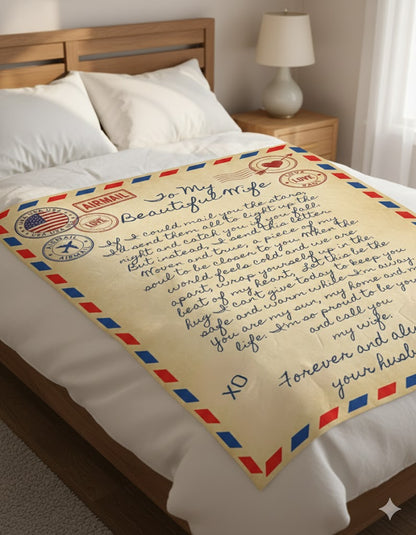 To My
Beautiful Wife
AIRMAIL
LOVE
LOVE
If I could mail you the stars,
I'd send them all to light up the
night and catch you if you fall.
But instead, I send this letter
Woven and true, a piece of my
soul to be closer to you. When the
world feels cold and we're
apart, wrap yourself up in the
beat of my heart. Let this be the
hug I can't give today to keep you
safe and warm while I'm away.
you are my sun, my home and my
life. I'm so proud to be your
and call you
my wife.
Forever and alw
your husb
XO